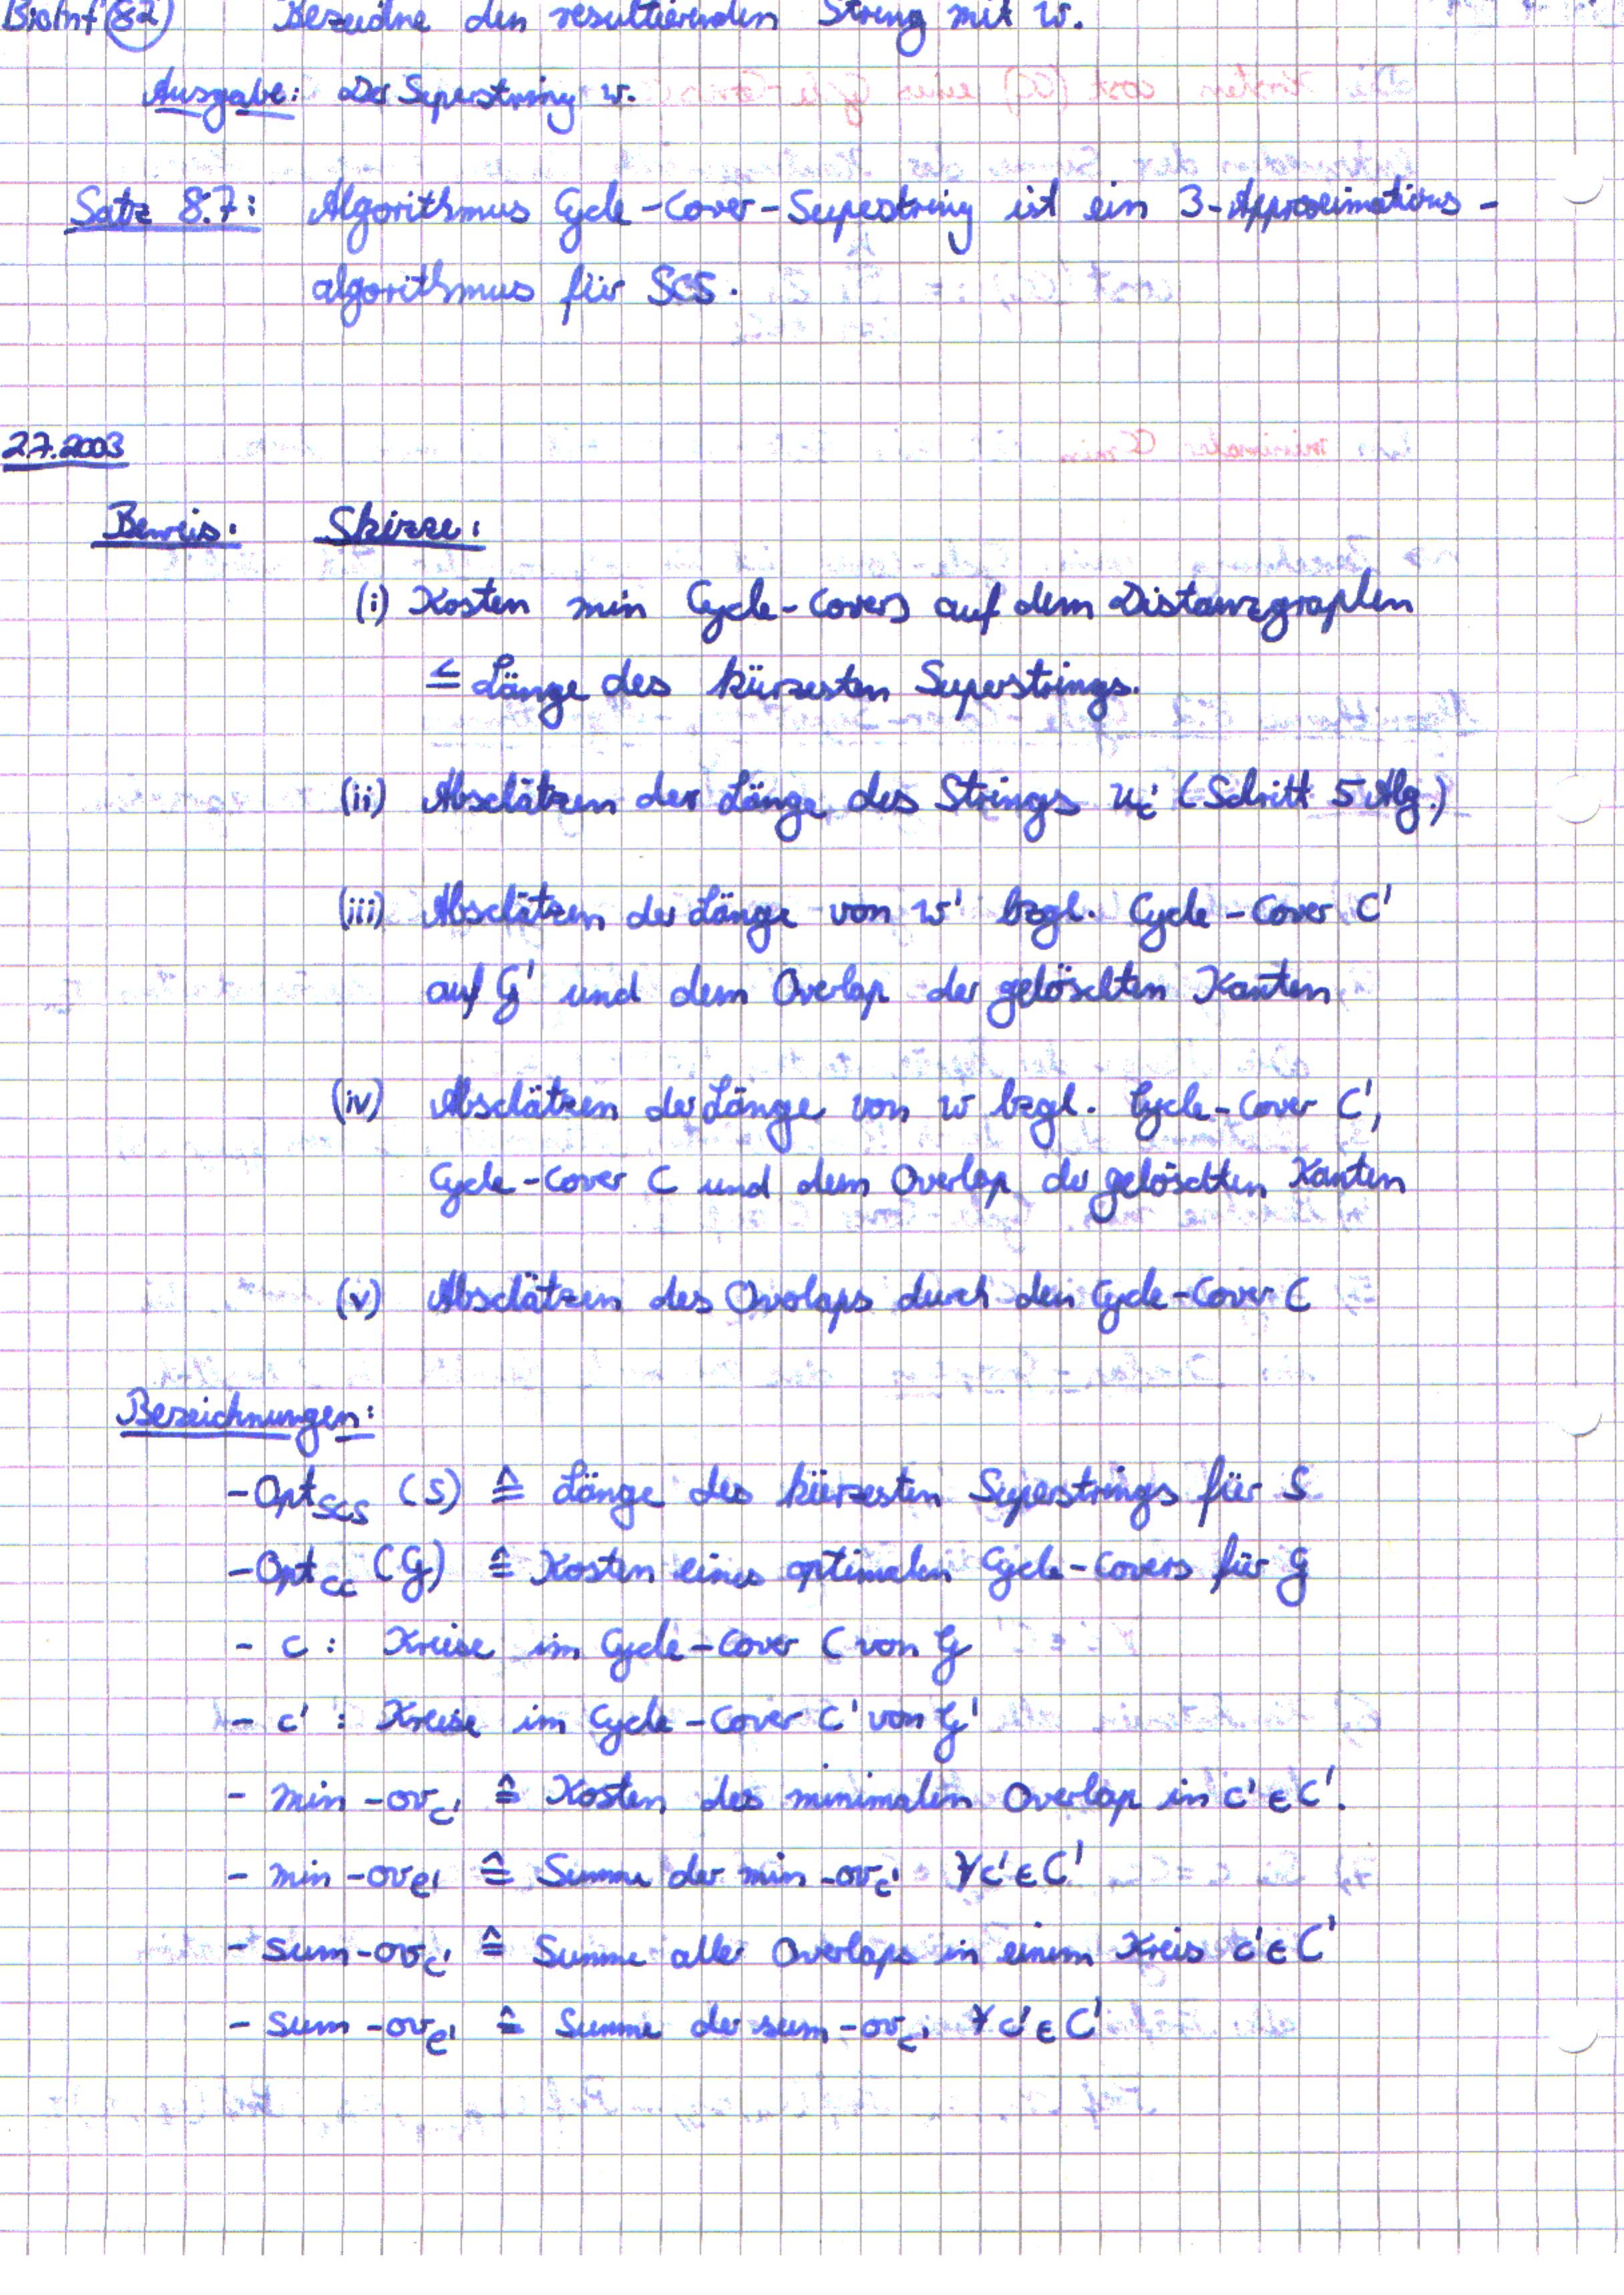 BioInf 82 Bezeichne den resultierenden String mit w.
Ausgabe: Der Superstring w.
Satz 8.7: Algorithmus Cycle-Cover-Superstring ist ein 3-Approximations-
algorithmus für SCS.
2.7.2003
Beweis: Skizze:
(i) Kosten min Cycle-Covers auf dem Distanzgraphen
≤ Länge des kürzesten Superstrings.
(ii) Abschätzen der Länge des Strings u_i (Schritt 5 Alg.)
(iii) Abschätzen der Länge von w' bzgl. Cycle-Cover C'
auf G' und dem Overlap der gelöschten Kanten
(iv) Abschätzen der Länge von w bzgl. Cycle-Cover C',
Cycle-Cover C und dem Overlap der gelöschten Kanten
(v) Abschätzen des Overlaps durch den Cycle-Cover C
Bezeichnungen:
- Opt_SCS (S) ≙ Länge des kürzesten Superstrings für S
- Opt_CC (G) ≙ Kosten eines optimalen Cycle-Covers für G
- c : Kreise im Cycle-Cover C von G
- c' : Kreise im Cycle-Cover C' von G'
- min-ov_c' ≙ Kosten des minimalen Overlap in c' ∈ C'.
- min-ov_C' ≙ Summe der min-ov_c' ∀c' ∈ C'
- sum-ov_c' ≙ Summe aller Overlaps in einem Kreis c' ∈ C'
- sum-ov_C' ≙ Summe der sum-ov_c' ∀ c' ∈ C'